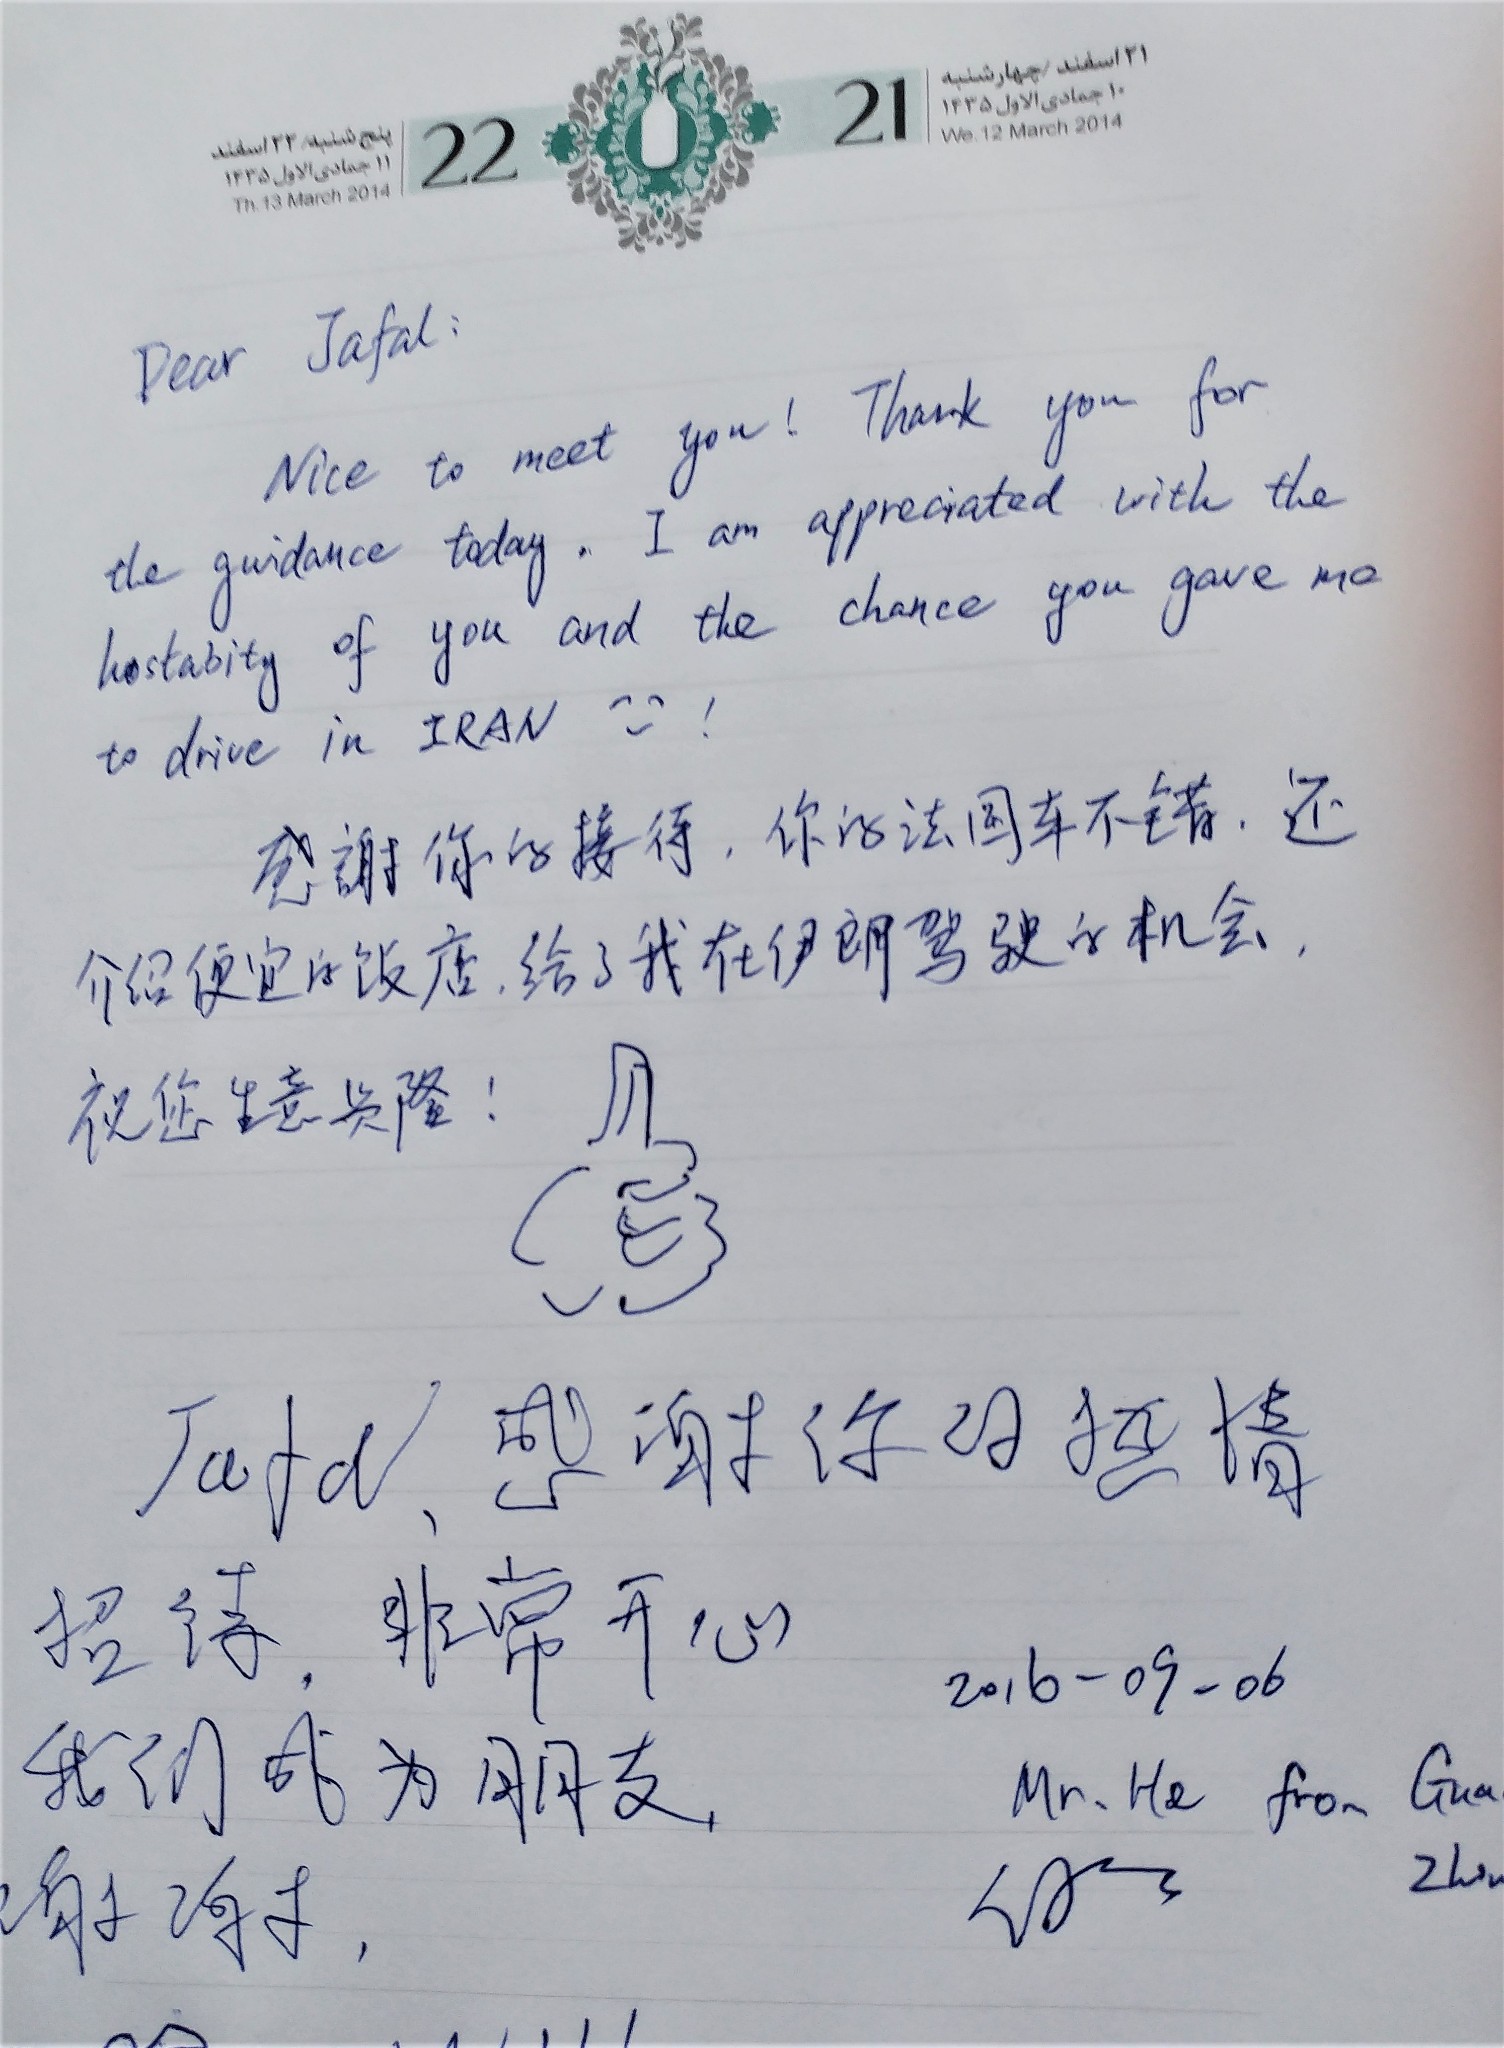 پنج شنبه/ ۲۲ اسفند
۱۱ جمادی الاول ۱۴۳۵
Th.13 March 2014
22
21
۲۱ اسفند /چهارشنبه
۱۰ جمادی الاول ۱۴۳۵
We.12 March 2014
Dear Jafal:
Nice to meet you! Thank you for
the guidance today. I am appreciated with the
hostabity of you and the chance you gave me
to drive in IRAN !
感謝你的接待,你的法国车不错,还
介绍便宜的饭店,给了我在伊朗驾驶的机会,
祝您生意兴隆!
Jafal、感谢你的热情
招待,非常开心
我们成为朋友,
谢谢,
2016-09-06
Mr. He from Gua
Zhou